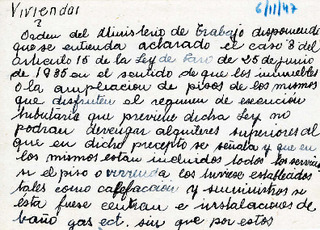 Viviendas 6/11/47
?
Orden del Ministerio de Trabajo disponiendo
que se entienda aclarado el caso 8 del
articulo 15 de la Ley de Paro de 25 de junio
de 1935 en el sentido de que los inmuebles
o la ampliacion de pisos de los mismos
que disfruten el regimen de exencion
tributaria que previene dicha Ley no
podran devengar alquileres superiores al
que en dicho precepto se señala y que en
los mismos estan incluidos todos los servicios
si el piso o vivienda los tuviese establecidos
tales como calefaccion y suministros si
ésta fuese central e instalaciones de
baño gas ect. sin que por estos